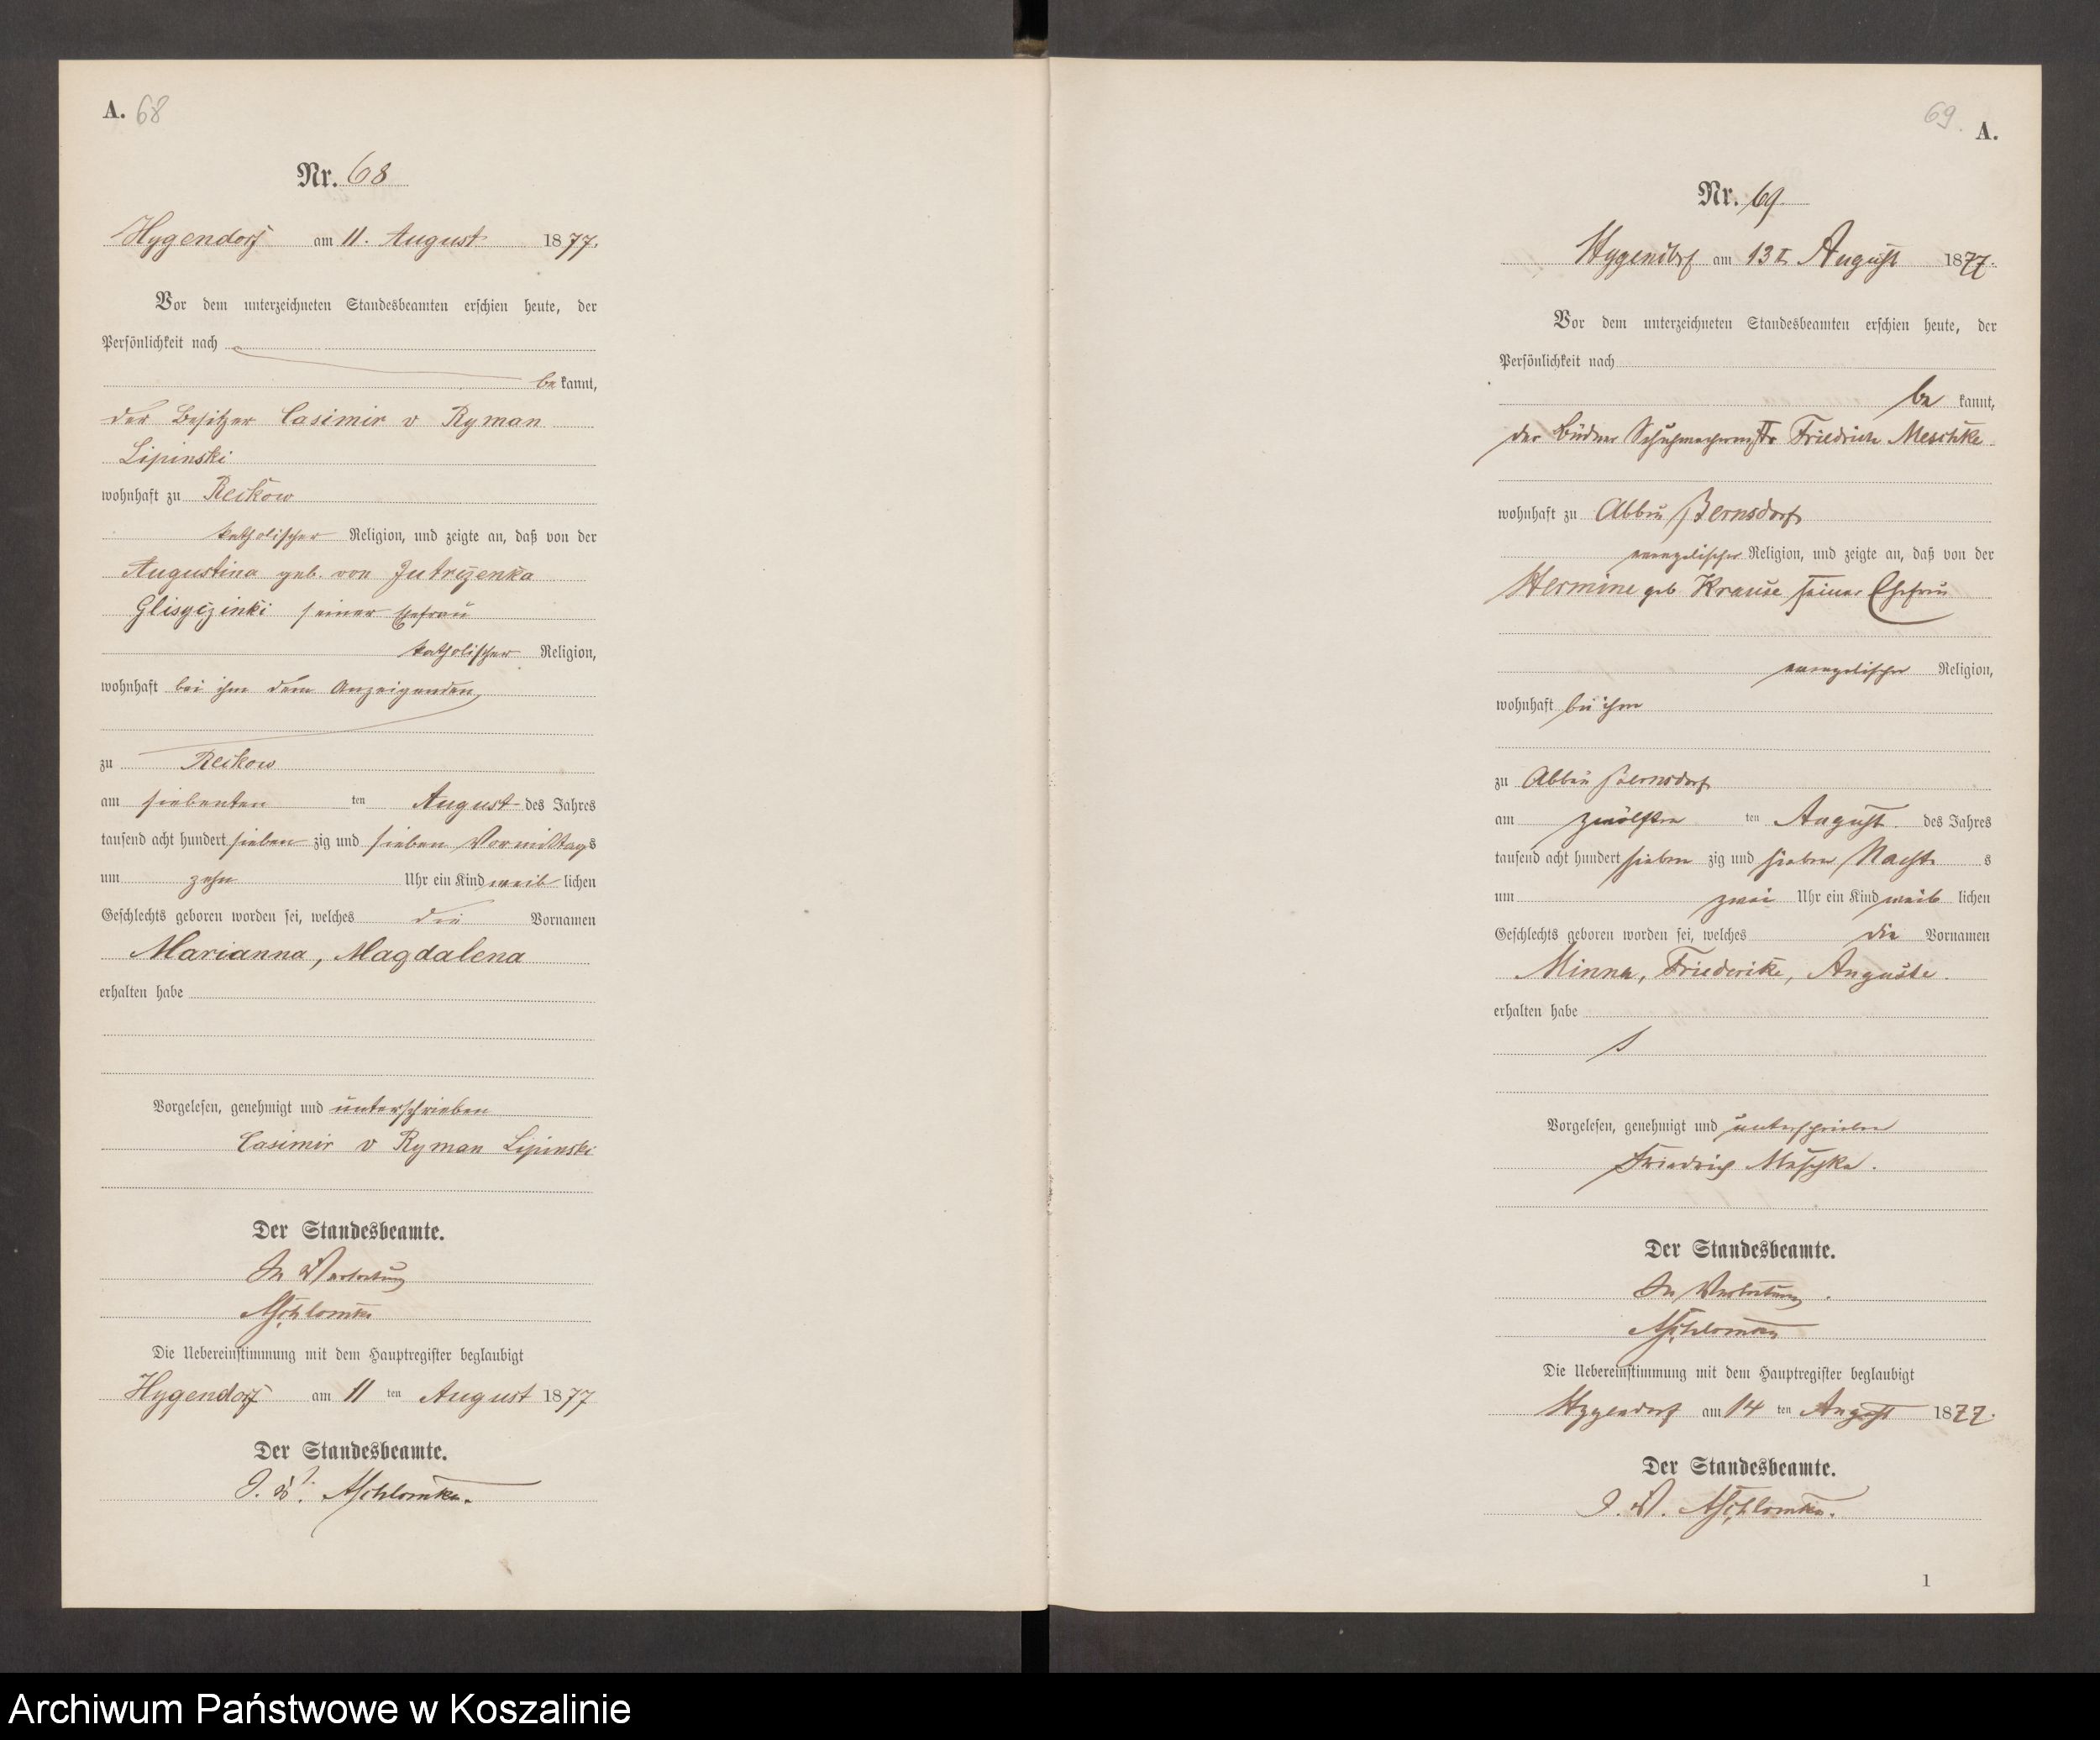 A. 68
Nr. 68
Hygendorf am 11. August 1877.
Vor dem unterzeichneten Standesbeamten erschien heute, der
Persönlichkeit nach
be kannt,
der Besitzer Casimir v Ryman
Lipinski
wohnhaft zu Reckow
katholischer Religion, und zeigte an, daß von der
Augustina geb. von Jutrzenka
seiner Ehefrau
katholischer Religion,
wohnhaft bei ihm dem Anzeigenden,
zu Reckow
am siebenten ten August des Jahres
tausend acht hundert sieben zig und sieben Vormittags
um zehn Uhr ein Kind weib lichen
Geschlechts geboren worden sei, welches die Vornamen
Marianna, Magdalena
erhalten habe
Vorgelesen, genehmigt und unterschrieben
Casimir v Ryman Lipinski
Der Standesbeamte.
In Vertretung
Die Uebereinstimmung mit dem Hauptregister beglaubigt
Hygendorf am 11 ten August 1877
Der Standesbeamte.
J. V.
69. A.
Nr. 69.
Hygendorf am 13t August 1877.
Vor dem unterzeichneten Standesbeamten erschien heute, der
Persönlichkeit nach
be kannt,
der Büdner Schuhmachermstr Friedrich Meschke
wohnhaft zu Abbau Bernsdorf
evangelischer Religion, und zeigte an, daß von der
Hermine geb Krause seiner Ehefrau
evangelischer Religion,
wohnhaft bei ihm
zu Abbau Bernsdorf
am zwölften ten August des Jahres
tausend acht hundert sieben zig und sieben Nacht s
um zwei Uhr ein Kind weib lichen
Geschlechts geboren worden sei, welches die Vornamen
Minna, Friederike, Auguste.
erhalten habe
Vorgelesen, genehmigt und unterschrieben
Friedrich Meschke.
Der Standesbeamte.
In Vertretung.
Die Uebereinstimmung mit dem Hauptregister beglaubigt
Hygendorf am 14 ten August 1877.
Der Standesbeamte.
J. V.
1
Archiwum Państwowe w Koszalinie